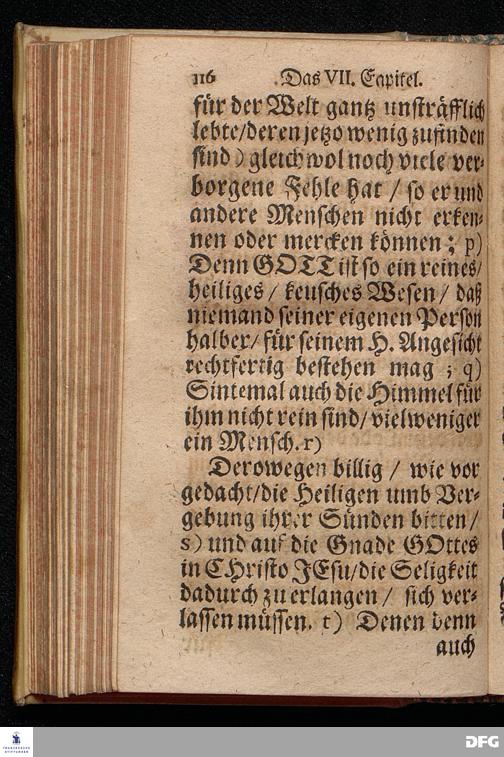 116 Das VII. Capitel.
für der Welt gantz unsträfflich
lebte/deren jetzo wenig zufinden
sind) gleichwol noch viele ver-
borgene Fehle hat / so er und
andere Menschen nicht erken-
nen oder mercken können; p)
Denn GOTT ist so ein reines/
heiliges / keusches Wesen / daß
niemand seiner eigenen Person
halber/ für seinem H. Angesicht
rechtfertig bestehen mag; q)
Sintemal auch die Himmel für
ihm nicht rein sind/ vielweniger
ein Mensch. r)
Derowegen billig / wie vor
gedacht/die Heiligen umb Ver-
gebung ihrer Sünden bitten/
s) und auf die Gnade GOttes
in CHristo JEsu/die Seligkeit
dadurch zu erlangen / sich ver-
lassen müssen. t) Denen denn
auch
FRANCKESCHE
STIFTUNGEN
DFG